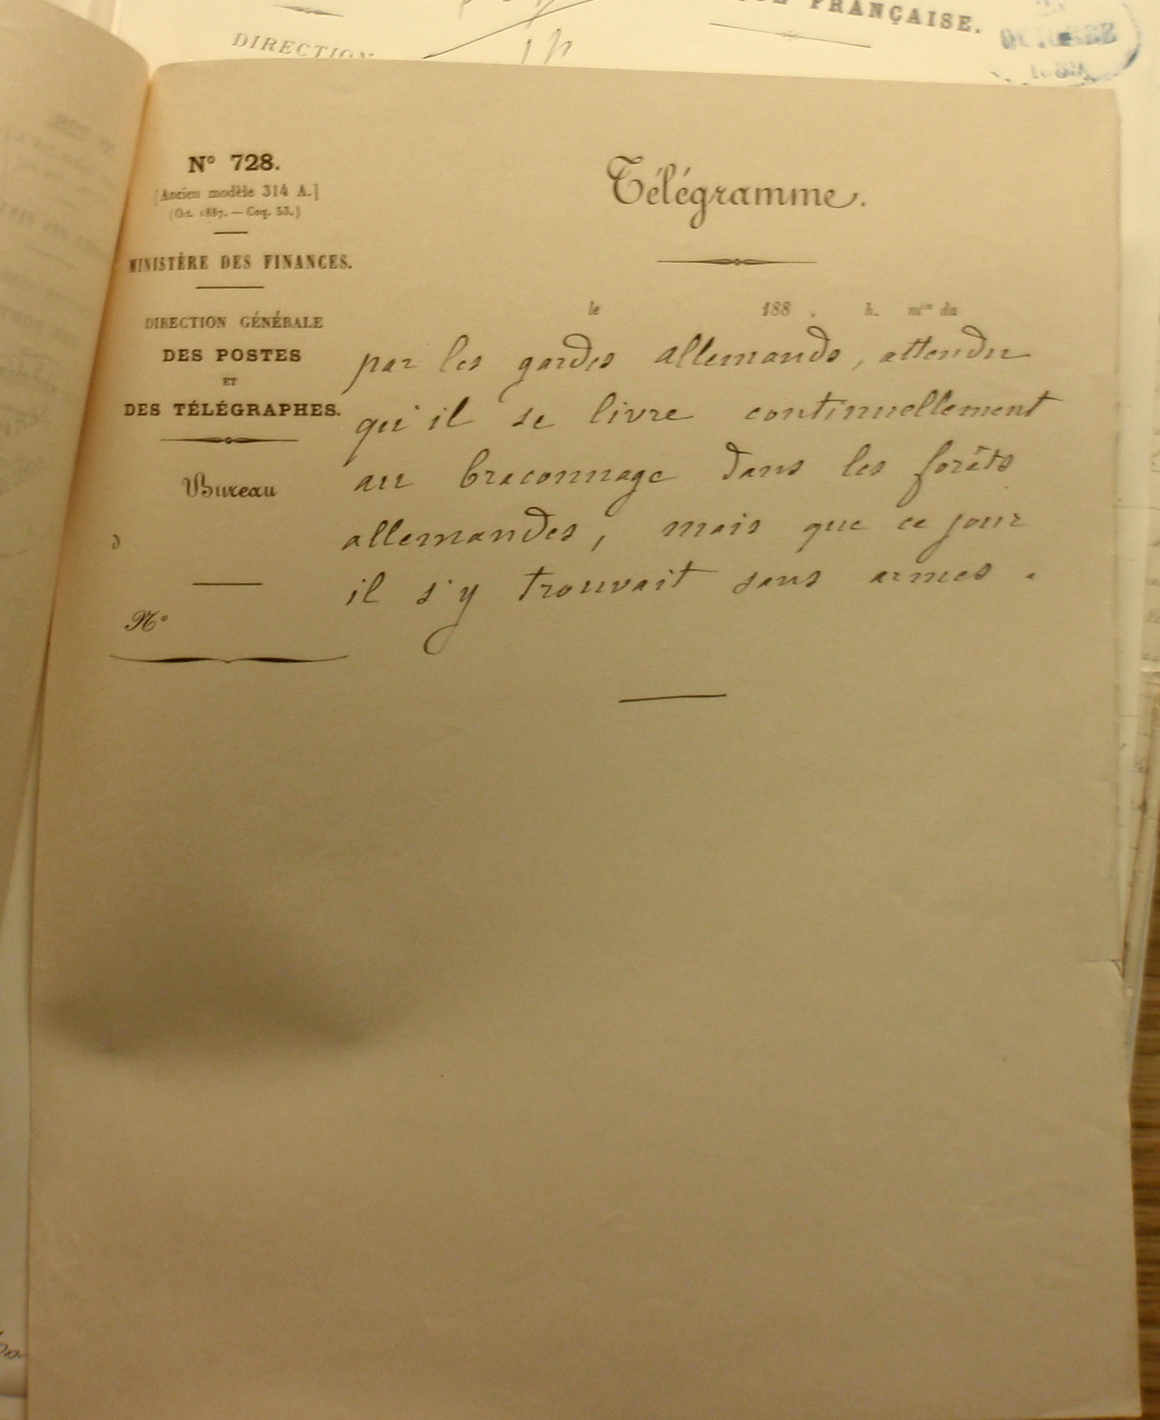 FRANÇAISE.
DIRECTION
OCTOBRE
N° 728.
[Ancien modèle 314 A.]
(Oct. 1887. — Coq. 53.)
MINISTÈRE DES FINANCES.
DIRECTION GÉNÉRALE
DES POSTES
ET
DES TÉLÉGRAPHES.
Bureau
d
N°
Télégramme.
le 188 . h. mⁱⁿ du
par les gardes allemands, attendu
qu'il se livre continuellement
au braconnage dans les forêts
allemandes, mais que ce jour
il s'y trouvait sans armes.